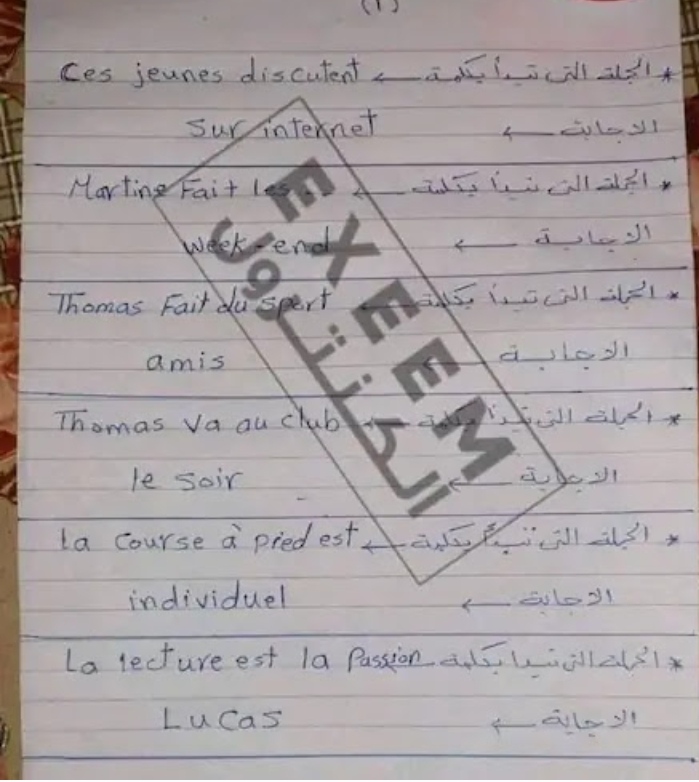 (1)
* الجملة التى تبدأ بكلمة ← Ces jeunes discutent
الاجابة ← sur internet
* الجملة التى تبدأ بكلمة ← Martine Fait les ..
الاجابة ← week-end
* الجملة التى تبدأ بكلمة ← Thomas Fait du sport
الاجابة ← amis
* الجملة التى تبدأ بكلمة ← Thomas va au club
الاجابة ← le soir
* الجملة التى تبدأ بكلمة ← la course à pied est
الاجابة ← individuel
* الجملة التى تبدأ بكلمة La lecture est la Passion
الاجابة ← Lucas
EXEEM
الكنترول